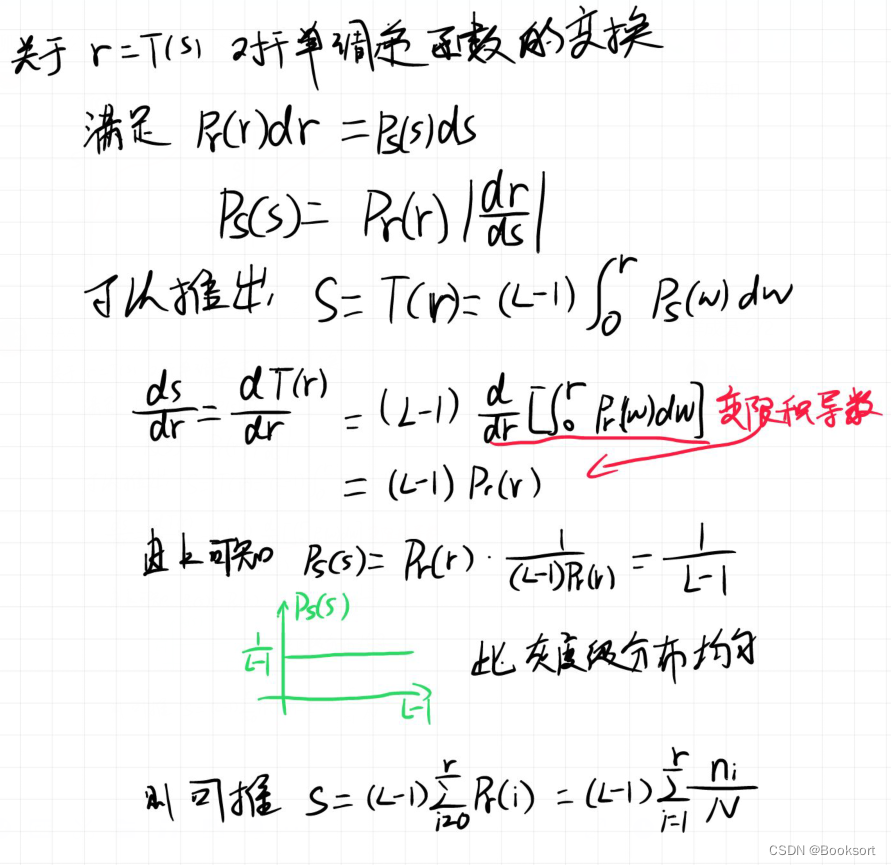 关于 r=T(s) 对于单调递函数的变换
满足 Pr(r)dr = Ps(s)ds
Ps(s) = Pr(r) |dr/ds|
可以推出, S = T(r) = (L-1) ∫₀ʳ Ps(w) dw
ds/dr = dT(r)/dr = (L-1) d/dr [∫₀ʳ Pr(w)dw] 变限积导数
= (L-1) Pr(r)
由上可知 Ps(s) = Pr(r) · 1/((L-1)Pr(r)) = 1/(L-1)
Ps(s)
1/(L-1)
L-1
此灰度级分布均匀
则可推 S = (L-1) ∑_{i=0}^{r} Pr(i) = (L-1) ∑_{i=1}^{r} ni/N
CSDN @Booksort